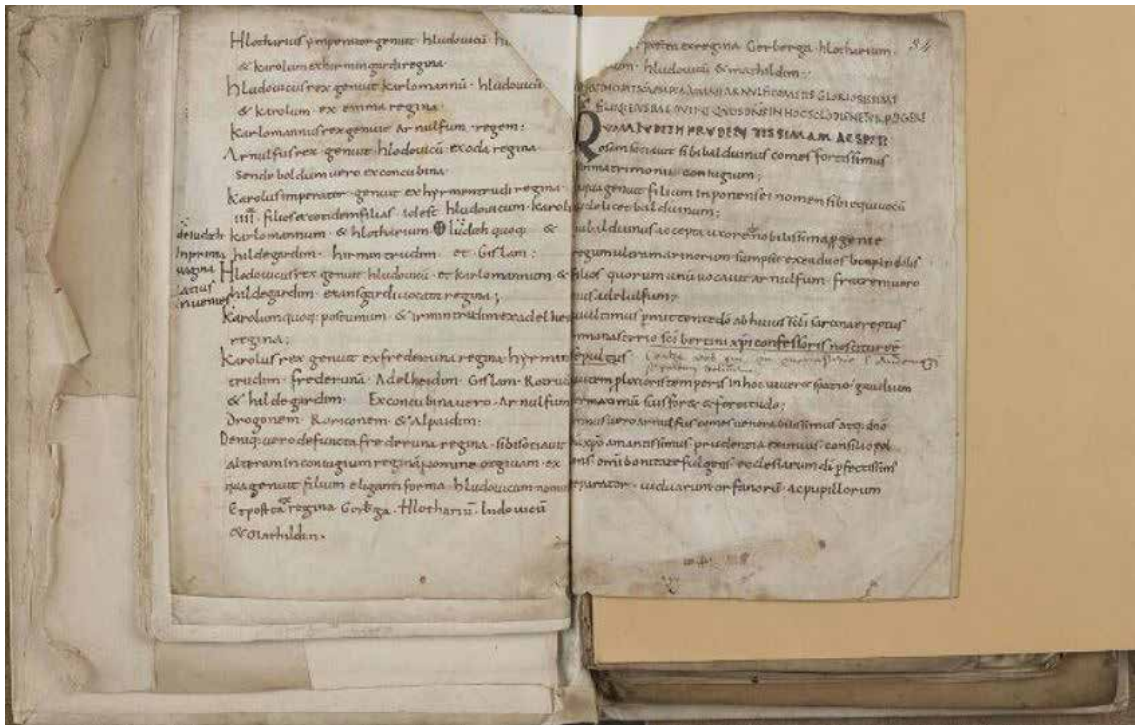 Hlotharius imperator genuit hludovicū
& karolum ex hirmingardi regina.
hludovicus rex genuit karlomannū. hludovicū
& karolum. ex emma regina.
karlomannus rex genuit arnulfum. regem:
Arnulfus rex genuit. hlodovicū ex oda regina
Sendeboldum uero ex concubina.
Karolus imperator genuit ex hyrmentrudi regina.
IIII. filios & totidem filias. id est hludovicum. karolū
de iudith
karlomannum. & hlotharium. iudith quoq; &
In prima
hildegardim. hirmintrudim. et Gislam:
pagina
Hlodovicus rex genuit hludovicū. et karlomannum &
latius
inuenies
hildegardim. ex ansgardi uocata regina;
Karolum quoq; postumum. & irmintrudim ex adelheidi
regina;
Karolus rex genuit ex frederuna regina. hyrmin
trudim. frederunā. Adelheidim. Gislam. Rotrudim
& hildegardim. Ex concubina uero. Arnulfum
Drogonem. Roriconem. & Alpaidim:
Deniq; uero defuncta frederuna regina. sibi sociauit
alteram in coniugium reginā nomine otgiuam. ex
qua genuit filium eleganti forma. hludovicum nomine
Et postea ex regina Gerberga. Hlothariū. ludovicū
& Mathildin.
postea ex regina Gerberga. hlotharium. 34
hludovicū & mathildim;
QUAM IUDITH PRUDENTISSIMAM AC SPETI
osam sociauit sibi balduinus comes fortissimus
in matrimonii coniugium;
qua genuit filium inponens ei nomen sibi equiuocū
uidelicet balduinum;
balduinus accepta uxore nobilissima gente
regum ultramarinorum sumpsit ex ea duos bonę indolis
filios quorum unū uocauit arnulfum. fratrem uero
eius adelulfum;
monasterio sc̄i bertini xp̄i confessoris noscitur ēē
sepultus
temporis in hoc uiuere spatio. gaudium
& fortitudo;
uero arnulfus comes uenerabilissimus atq; dn̄o
xp̄o amantissimus prudentia eximius. consilio pol
lens. omī bonitate fulgens. ecclesiarum dī p̄fectissim'
reparator. uiduarum orfanorū. ac pupillorum